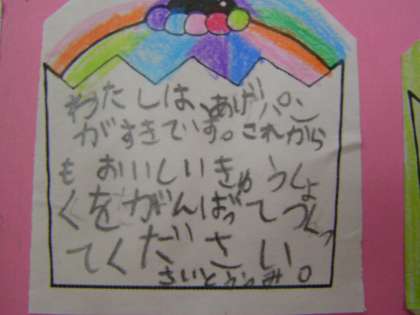 わたしは、あげパン
がすきです。これから
も おいしいきゅうしょ
くをがんばってつくっ
てください。
さいとう み。